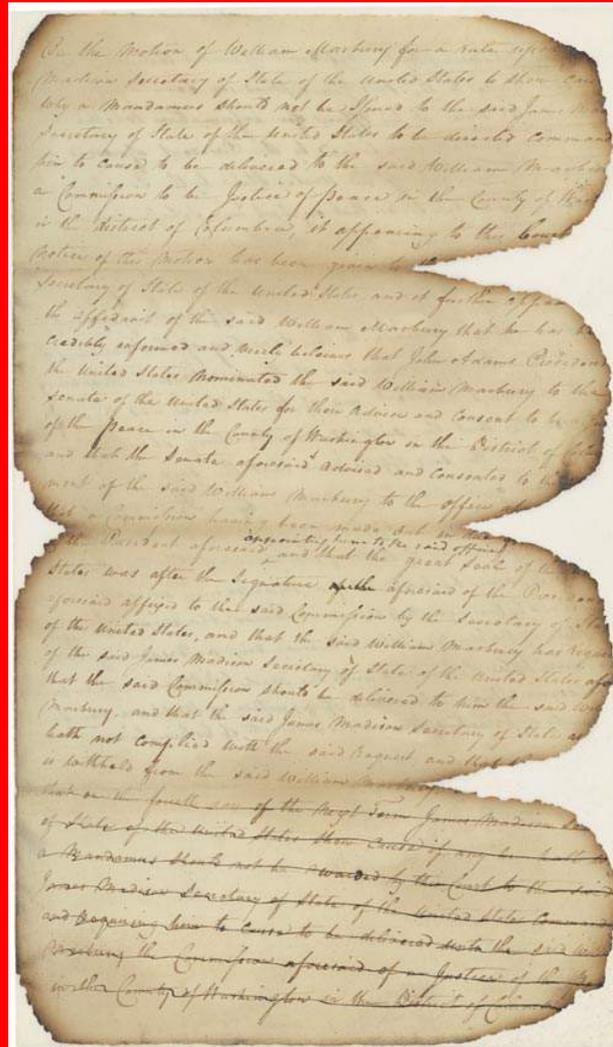 On the Motion of William Marbury for a rule
Madison Secretary of State of the United States to show
why a Mandamus should not be Issued to the said James
Secretary of State of the United States to be directed
him to cause to be delivered to the said William
a Commission to be Justice of peace in the County of
in the district of Columbia, it appearing to this Court
notice of this Motion has been given to the
Secretary of State of the United States and it further
the affidavit of the said William Marbury that he has
credibly informed and verily believes that John Adams
the United States Nominated the said William Marbury to the
Senate of the United States for their Advice and Consent to be a
of the peace in the County of Washington in the District of
and that the Senate aforesaid advised and consented to the
ment of the said William Marbury to the office
that a Commission having been made out in
appointing him to the said office
the President aforesaid and that the great Seal of the
States was after the Signature aforesaid of the
aforesaid affixed to the said Commission by the Secretary of
of the United States, and that the said William Marbury has
of the said James Madison Secretary of State of the United States
that the said Commission should be delivered to him the said
Marbury, and that the said James Madison Secretary of State
hath not complied with the said request and that
is withheld from the said William Marbury
that on the fourth day of the Next Term James Madison
of State of the United States show Cause if any he hath
a Mandamus should not be awarded by this Court to the said
James Madison Secretary of State of the United States
and requiring him to cause to be delivered unto the said
Marbury the Commission aforesaid of a Justice of the
in the County of Washington in the District of